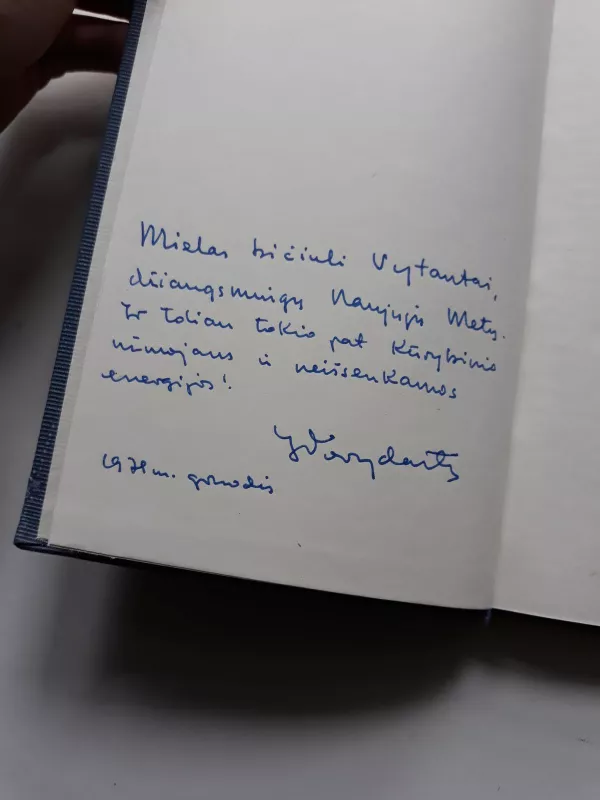 Mielas bičiuli Vytautai,
džiaugsmingų Naujųjų Metų.
Ir toliau tokio pat kūrybinio
nerimojans ir neišsenkamos
energijos!
gruodis